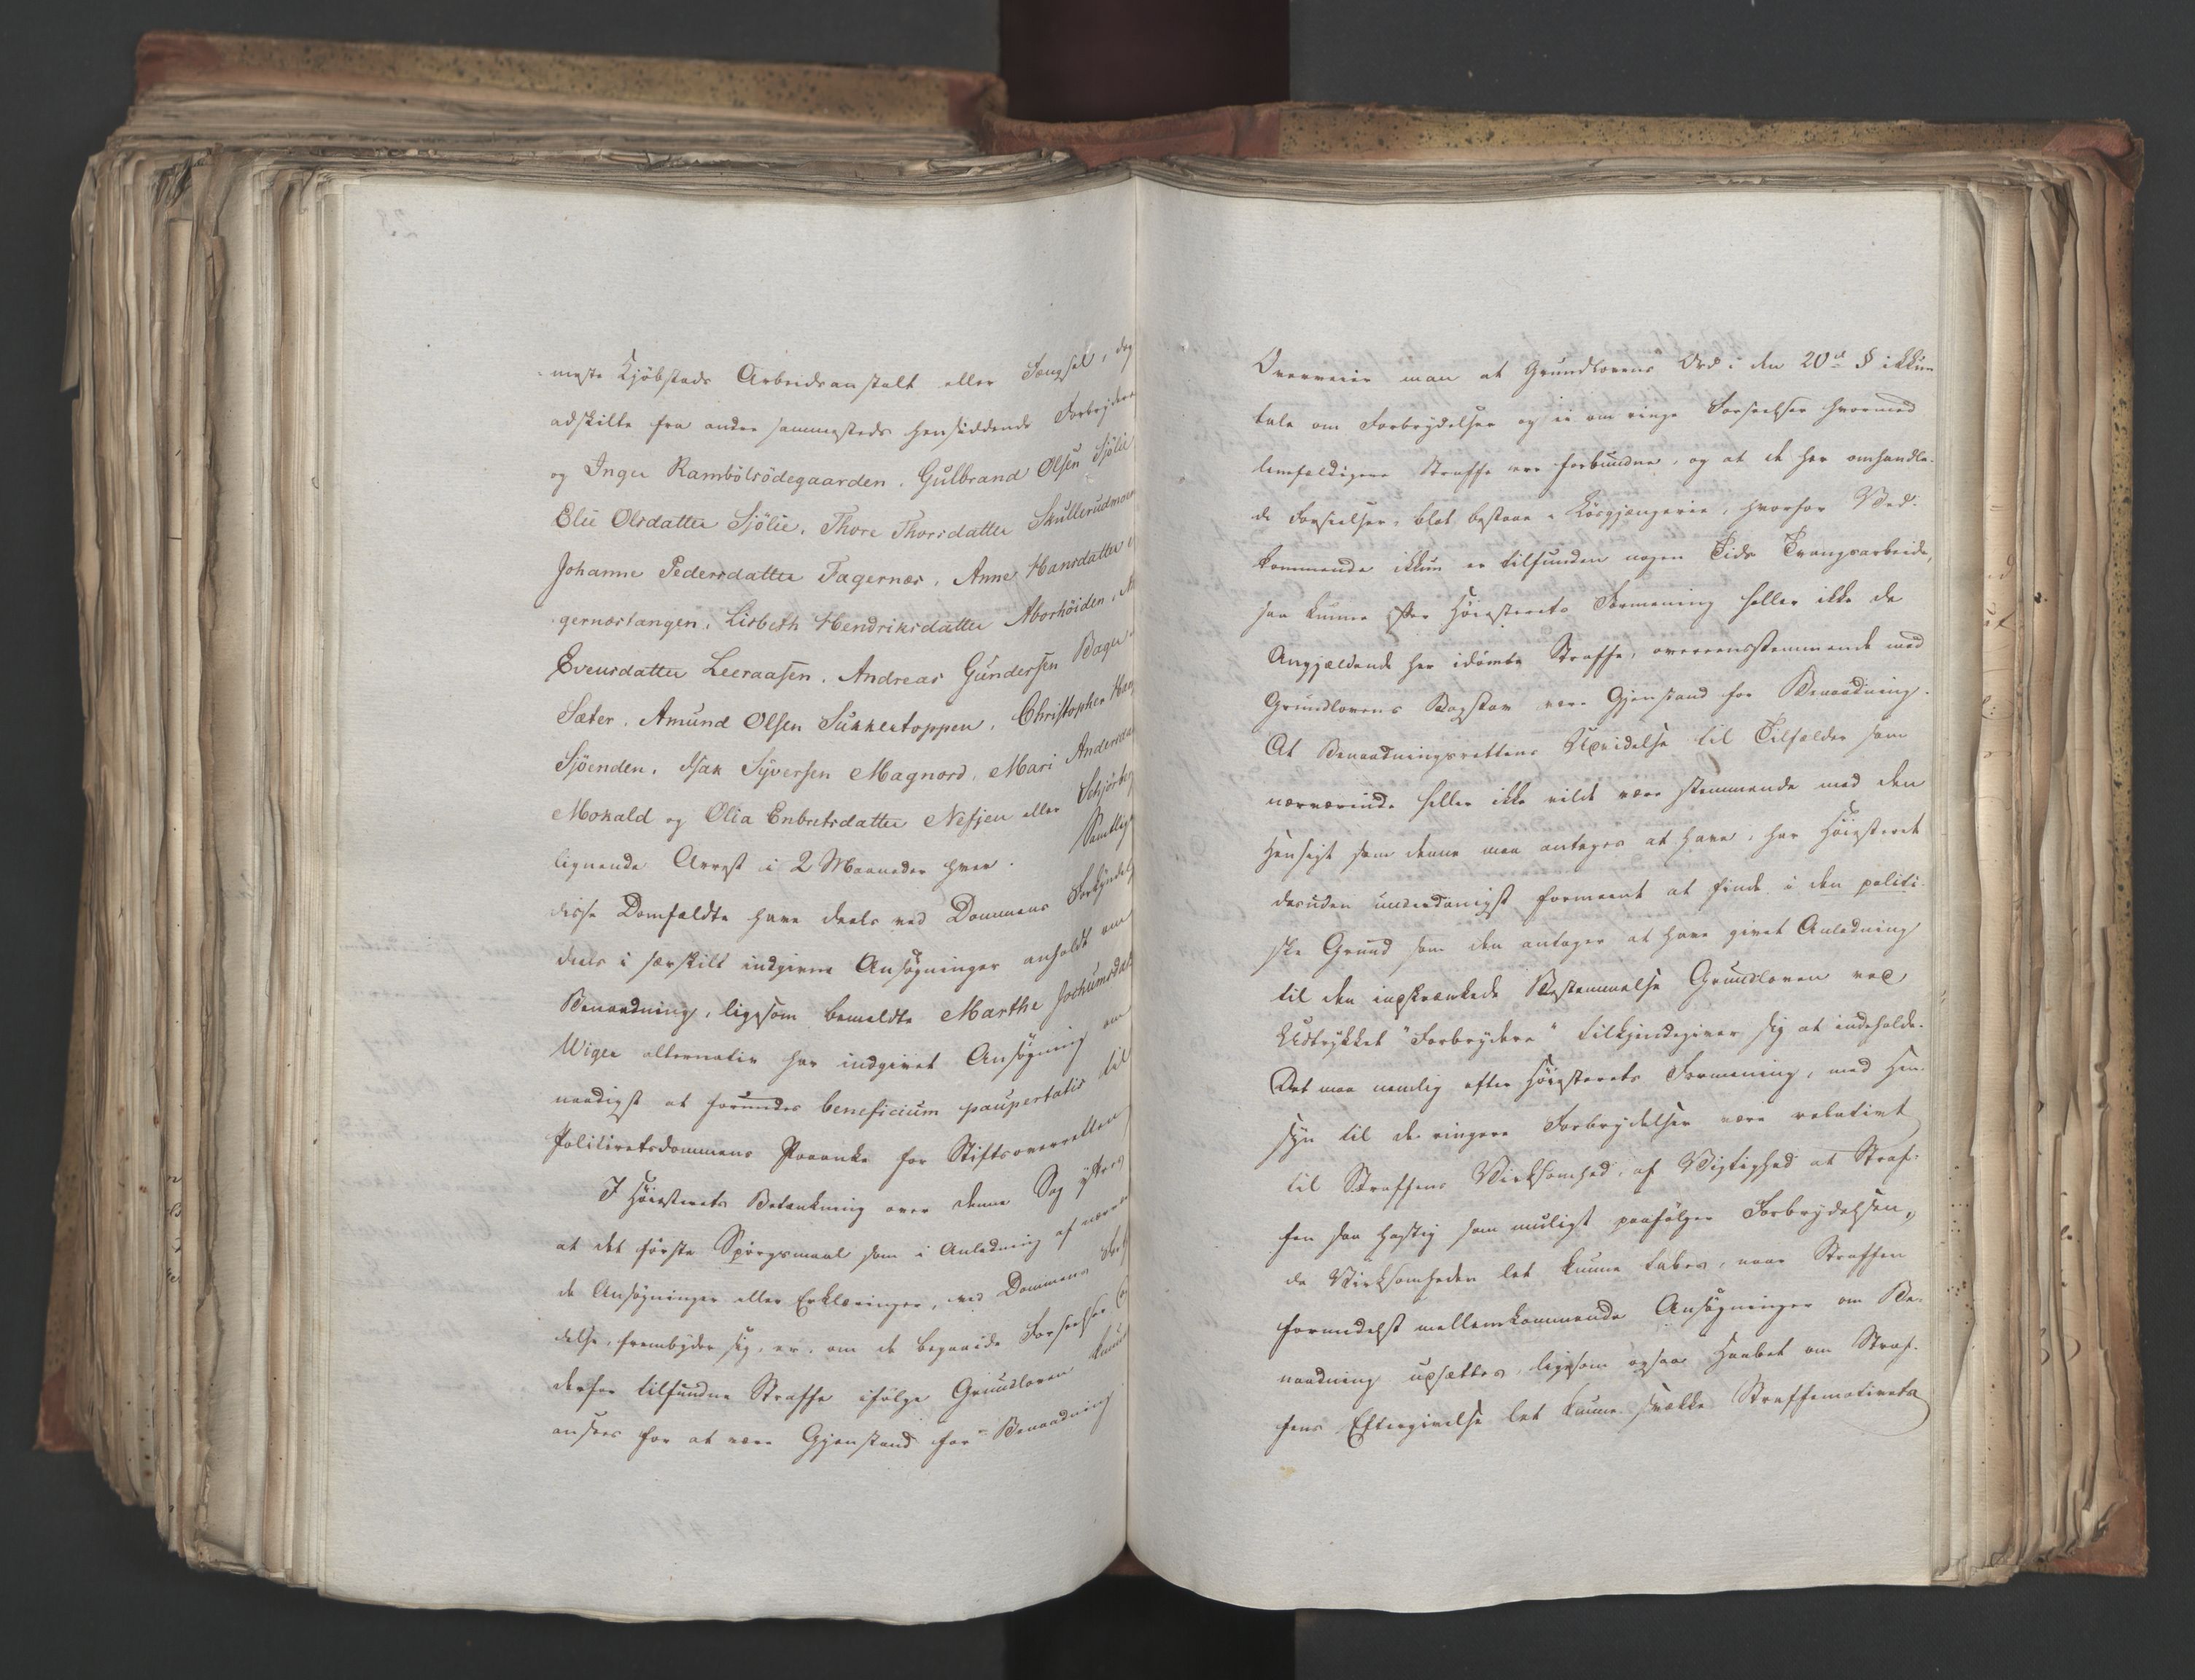 meste Kjöbstads Arbeidsanstalt eller Fængsel, dog
adskilte fra andre sammesteds hensiddende Forbrydere
og Inger Rambölsödegaarden, Gulbrand Olsen Sjölie
Elie Olsdatter Sjölie, Thore Thorsdatter Skullerudmoen
Johanne Pedersdatter Fagernæs, Anne Hansdatter
gernæstangen, Lisbeth Hendriksdatter Aborhöiden,
Evensdatter Leeraasen, Andreas Gundersen Bager
Sæter, Amund Olsen Sukkertoppen, Christopher
Sjöenden, Isak Syversen Magnord, Mari Andersdat
Mokald og Olia Enbretsdatter Nefsjen eller
lignende Arrest i 2 Maaneder hver. Samtlige
disse Domfældte have deels ved Dommens Forkyndelse
deels i særskilt indgivne Ansøgninger anholdt om
Benaadning, ligesom bemeldte Marthe Jochumsdat
Wiger alternativ har indgivet Ansøgning om
naadigst at forundes beneficium paupertatis til
Politiretsdommens Paaanke for Stiftsoverretten
I Høiesterets Betænkning over denne Sag yttres
at det förste Spörgsmaal som i Anledning af nærvæ
de Ansøgninger eller Erklæringer, ved Dommens Forkyn
delse, frembyder sig, er, om de begaaede Forseelser
derfor tilfundne Straffe ifölge Grundloven kunne
ansees for at være Gjenstand for Benaadning
Overveier man at Grundlovens Ord i den 20de § ikkun
tale om Forbrydelser og ei om ringe Forseelser hvormed
lemfældigere Straffe ere forbundne, og at de her omhandle-
de Forseelser, blot bestaae i Løsgjængerie, hvorfor Ved-
kommende ikkun er tilfunden nogen Tids Tvangsarbeide,
saa kunne efter Høiesterets Formening heller ikke de
Angjældende her idömte Straffe, overeensstemmende med
Grundlovens Bogstav være Gjenstand for Benaadning.
At Benaadningsrettens Udvidelse til Tilfælder som
nærværende heller ikke vilde være stemmende med den
Hensigt som denne maa antages at have, har Høiesteret
desuden underdanigst formeent at finde i den politi-
ske Grund som den antager at have givet Anledning
til den indskrænkede Bestemmelse Grundloven ved
Udtrykket "Forbrydere" tilkjendegiver sig at indeholde.
Det maa nemlig efter Høiesterets Formening, med Hen-
syn til de ringere Forbrydelser være relativt
til Straffens Virksomhed, af Vigtighed at Straf-
fen saa hastig som muligt paafölger Forbrydelsen,
da Virksomheden let kunne tabes, naar Straffen
formedelst mellemkommende Ansøgninger om Be-
naadning udsættes, ligesom ogsaa Haabet om Straf-
fens Eftergivelse let kunne svække Straffemotivets